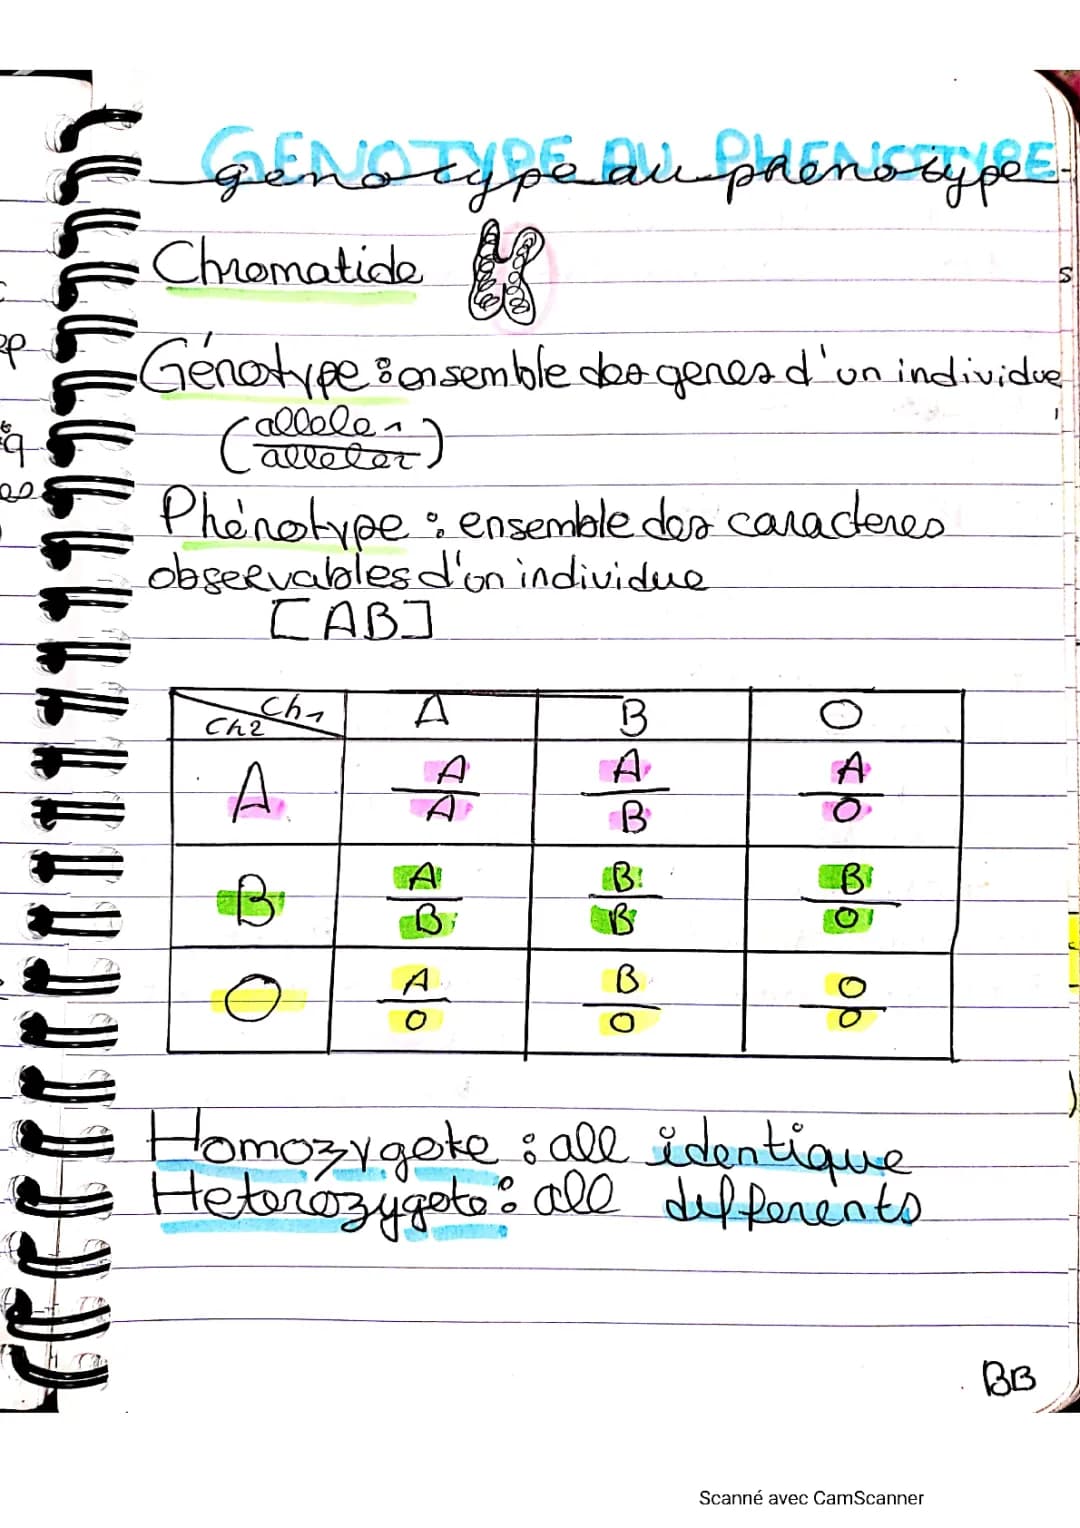 GÉNOTYPE AU PHENOTYPE
génotype au phénotype
Chromatide
Génotype : ensemble des genes d'un individue
(allele 1
allele 2)
Phénotype : ensemble des caracteres
observables d'un individue
[AB]
Ch1
Ch2 A B O
A A/A A/B A/O
B A/B B/B B/O
O A/O B/O O/O
Homozygote : all identique
Heterozygote : all differents
BB
Scanné avec CamScanner